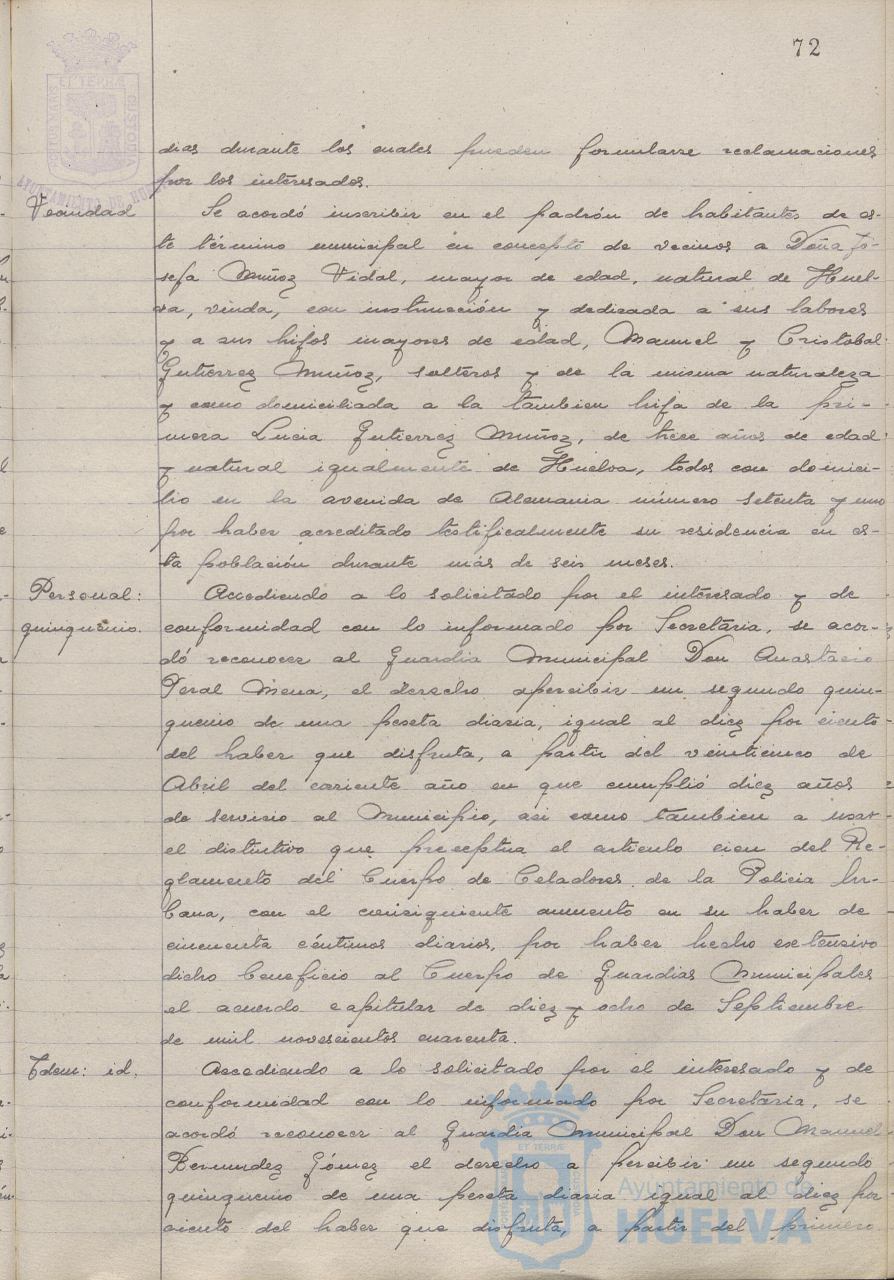 72
días durante los cuales pueden formularse reclamaciones
por los interesados.
Vecindad
Se acordó inscribir en el padrón de habitantes de es-
te término municipal en concepto de vecinos a Doña Jo-
sefa Muñoz Vidal, mayor de edad, natural de Huel-
va, viuda, con instrucción y dedicada a sus labores
y a sus hijos mayores de edad, Manuel y Cristobal
Gutierrez Muñoz, solteros y de la misma naturaleza
y como domiciliada a la tambien hija de la pri-
mera Lucia Gutierrez Muñoz, de trece años de edad
y natural igualmente de Huelva, todos con domici-
lio en la avenida de Alemania número setenta y uno
por haber acreditado testificalmente su residencia en es-
ta población durante más de seis meses.
Personal:
quinquenio.
Accediendo a lo solicitado por el interesado y de
conformidad con lo informado por Secretaria, se acor-
dó reconocer al Guardia Municipal Don Anastacio
Peral Mena, el derecho apercibir un segundo quin-
quenio de una peseta diaria, igual al diez por ciento
del haber que disfruta, a partir del veinticinco de
Abril del corriente año en que cumplió diez años
de servicio al Municipio, asi como tambien a usar
el distintivo que preceptua el articulo cien del Re-
glamento del Cuerpo de Celadores de la Policia Ur-
bana, con el consiguiente aumento en su haber de
cincuenta céntimos diarios, por haber hecho extensivo
dicho beneficio al Cuerpo de Guardias Municipales
el acuerdo capitular de diez y ocho de Septiembre
de mil novescientos cuarenta.
Idem: id.
Accediendo a lo solicitado por el interesado y de
conformidad con lo informado por Secretaria, se
acordó reconocer al Guardia Municipal Don Manuel
Bermudez Gómez el derecho a percibir un segundo
quinquenio de una peseta diaria igual al diez por
ciento del haber que disfruta, a partir del primero
ET TERRÆ
CUSTODIA
AYUNTAMIENTO DE
ET TERRÆ
Ayuntamiento de
HUELVA